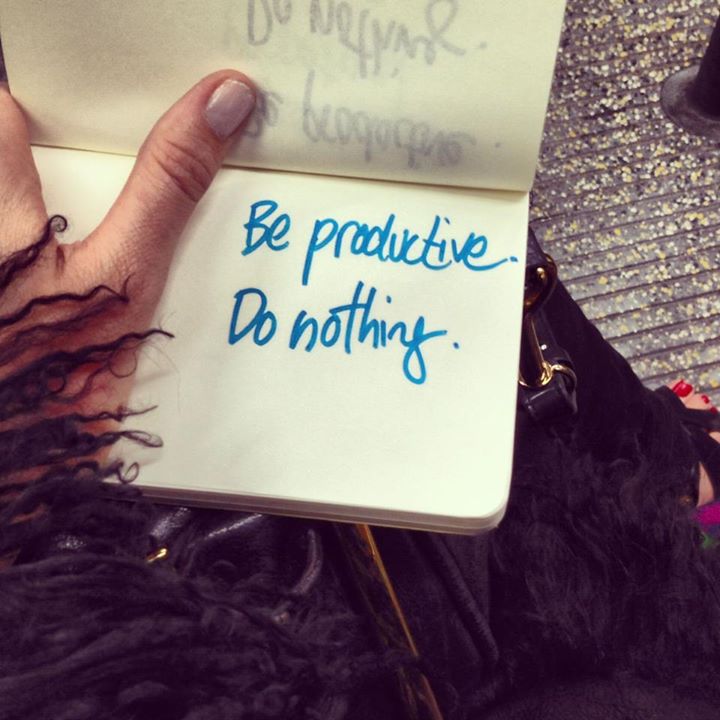 Be productive.
Do nothing.